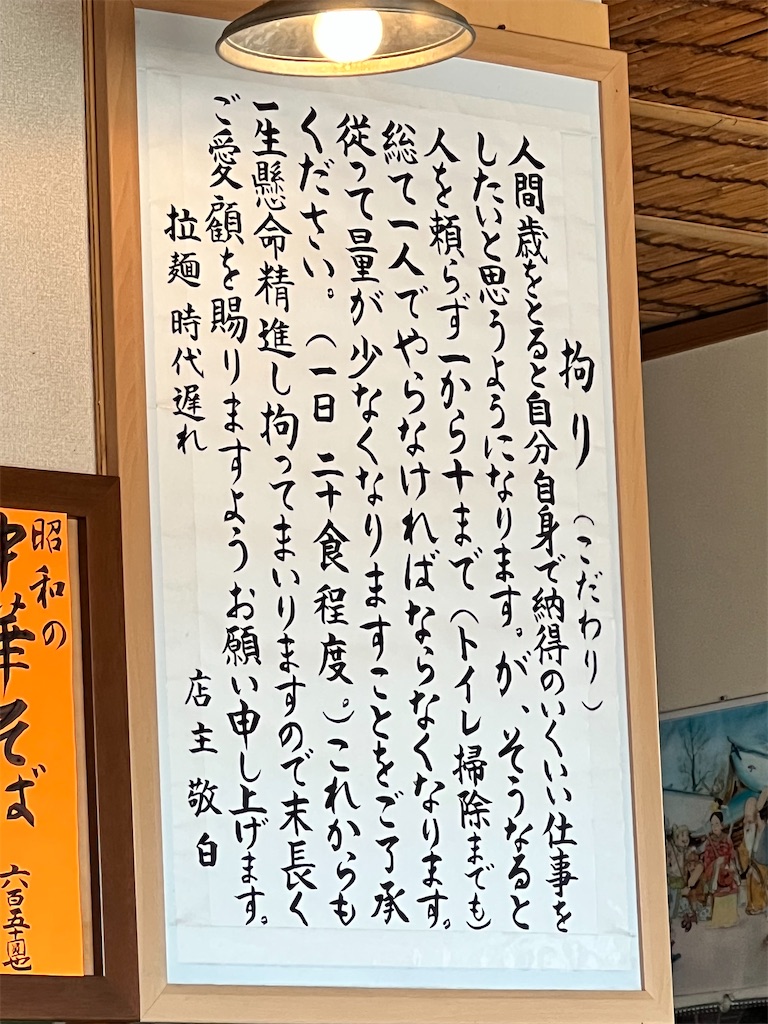 拘り
（こだわり）
人間歳をとると自分自身で納得のいくいい仕事を
したいと思うようになります。が、そうなると
人を頼らず一から十まで（トイレ掃除までも）
総て一人でやらなければならなくなります。
従って量が少なくなりますことをご了承
ください。（一日 二十食程度。）これからも
一生懸命精進し拘ってまいりますので末長く
ご愛顧を賜りますようお願い申し上げます。
拉麺 時代遅れ
店主 敬白
昭和の
中華そば
六百五十円也